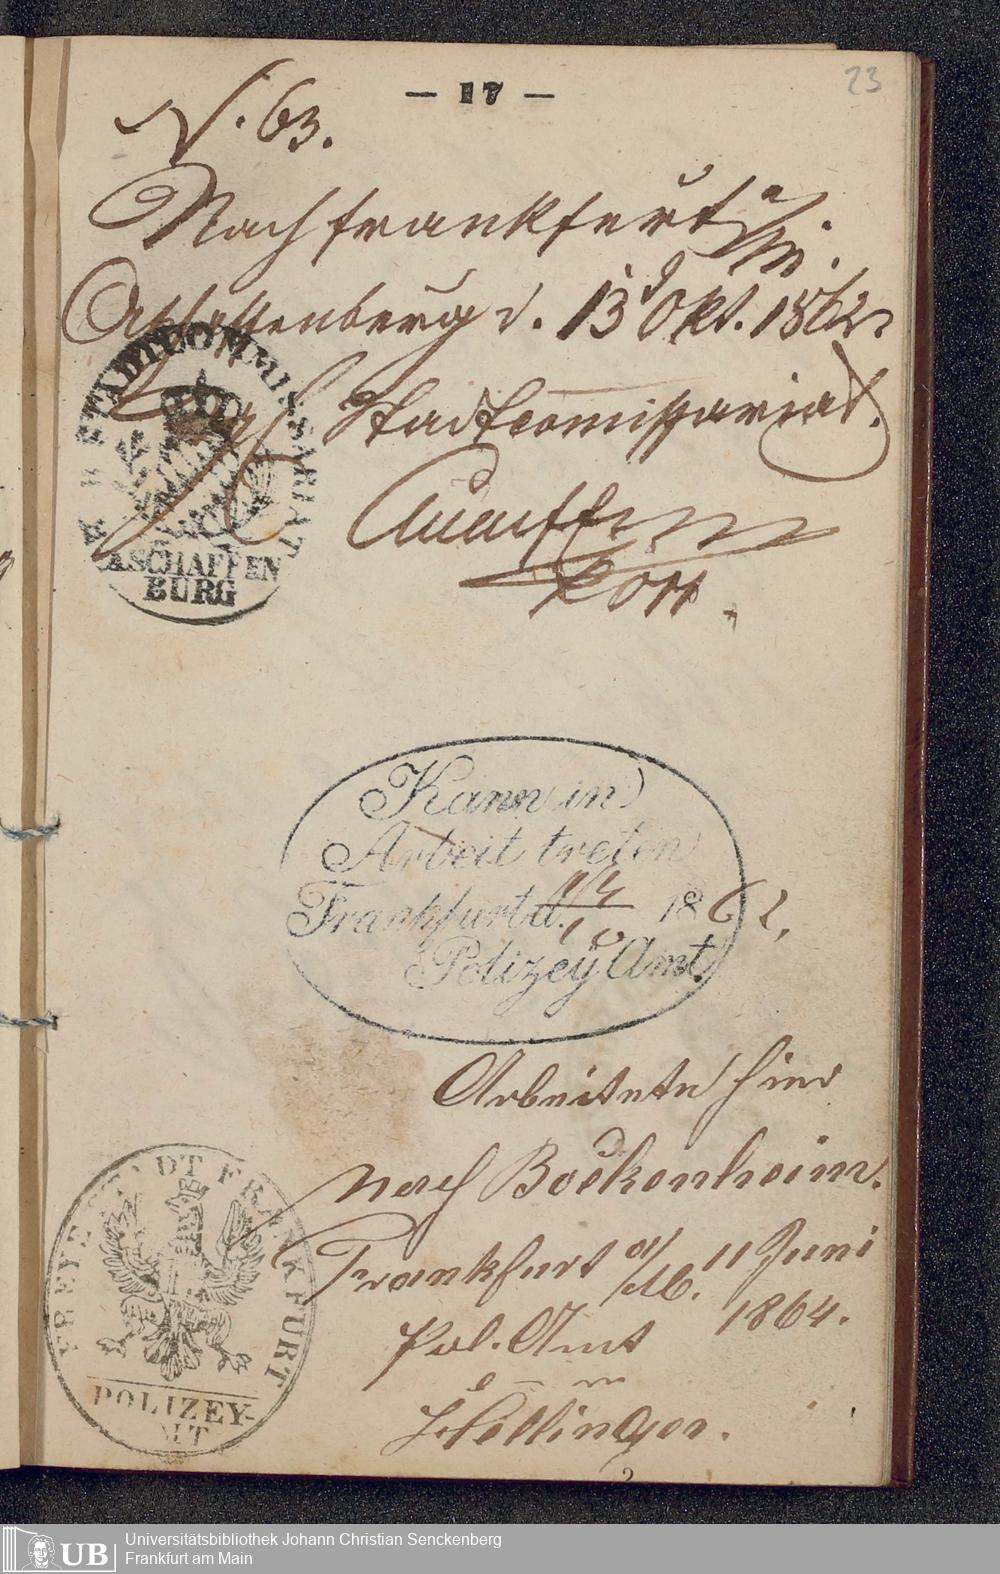 — 17 —
23
N. 63.
Nach Frankfurt a/M.
Aschaffenburg d. 13 Okt. 1862
Stadtcommissariat.
K. B. STADTCOMMISSARIAT
ASCHAFFEN
BURG
Kann in
Arbeit treten
Frankfurt d. 14/10 1862.
Polizey Amt.
Arbeitete hier
nach Bockenheim.
Frankfurt a/M. 11 Juni
1864.
Pol. Amt
FREYE STADT FRANKFURT
POLIZEY-
AMT
UB
Universitätsbibliothek Johann Christian Senckenberg
Frankfurt am Main